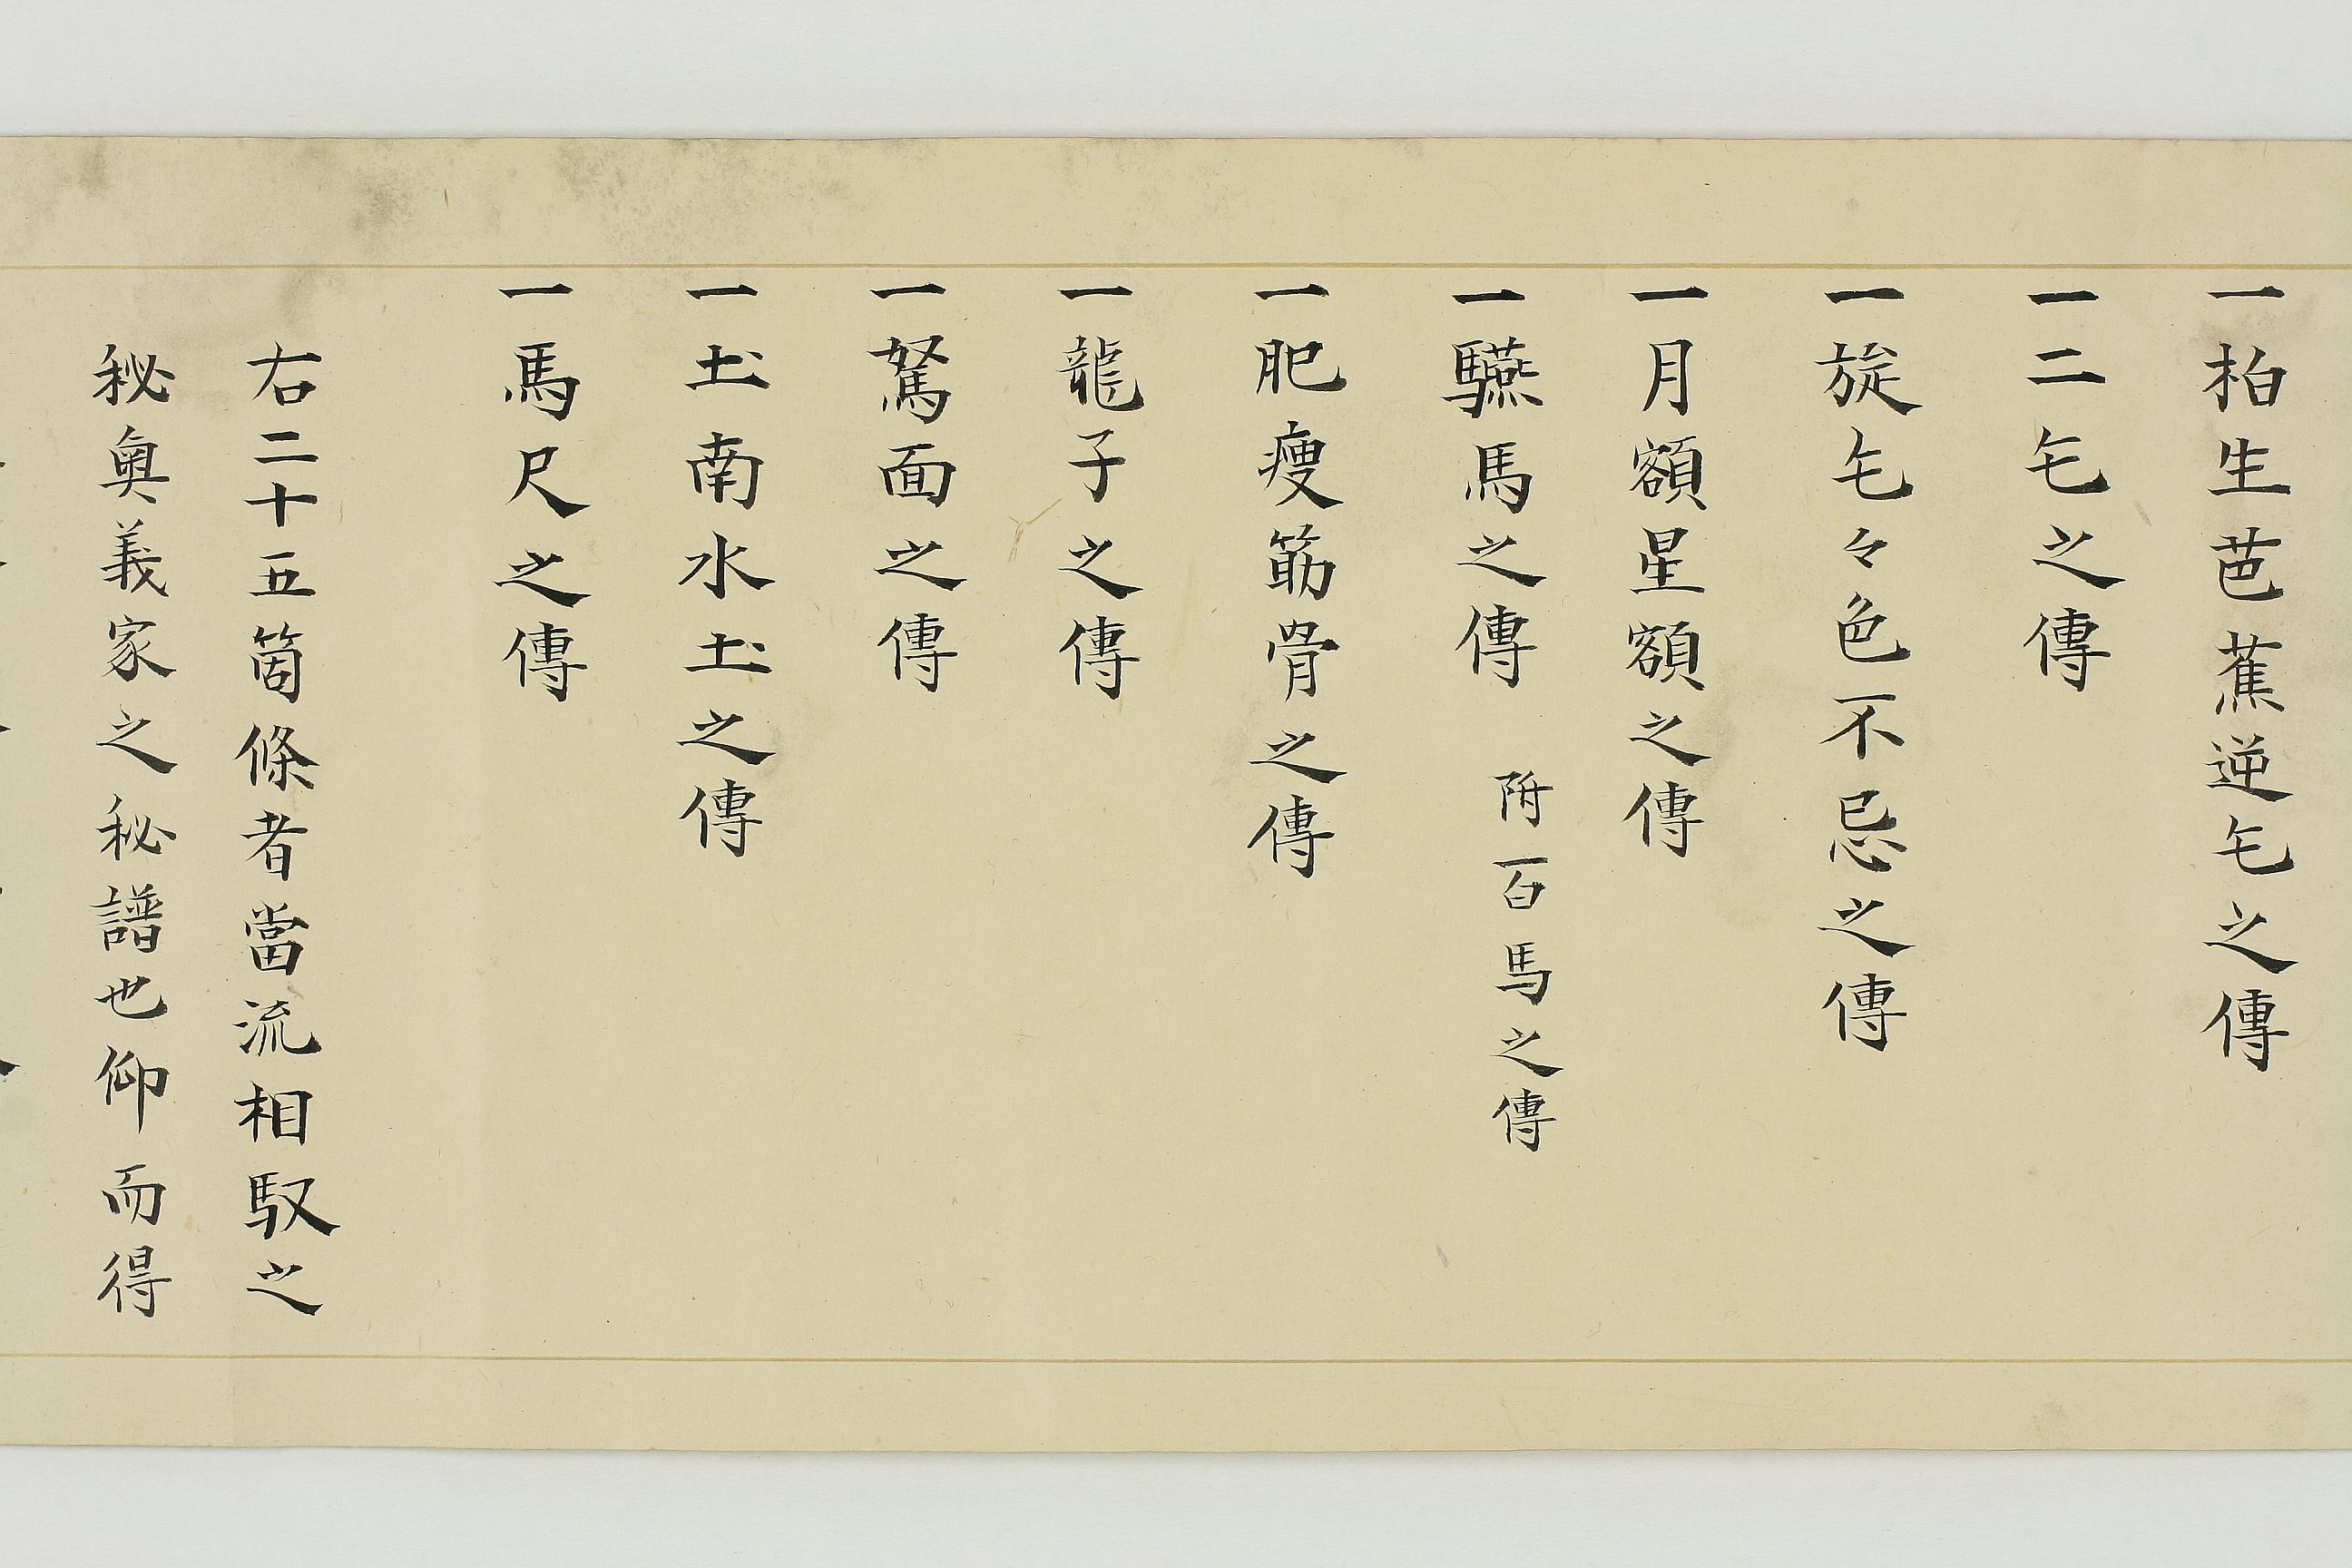 一柏生芭蕉逆毛之傳
一二毛之傳
一旋毛々色不忌之傳
一月額星額之傳
一驠馬之傳 附百馬之傳
一肥瘦筋骨之傳
一龍子之傳
一駑面之傳
一土南水土之傳
一馬尺之傳
右二十五箇條者當流相馭之
秘奥義家之秘譜也仰而得